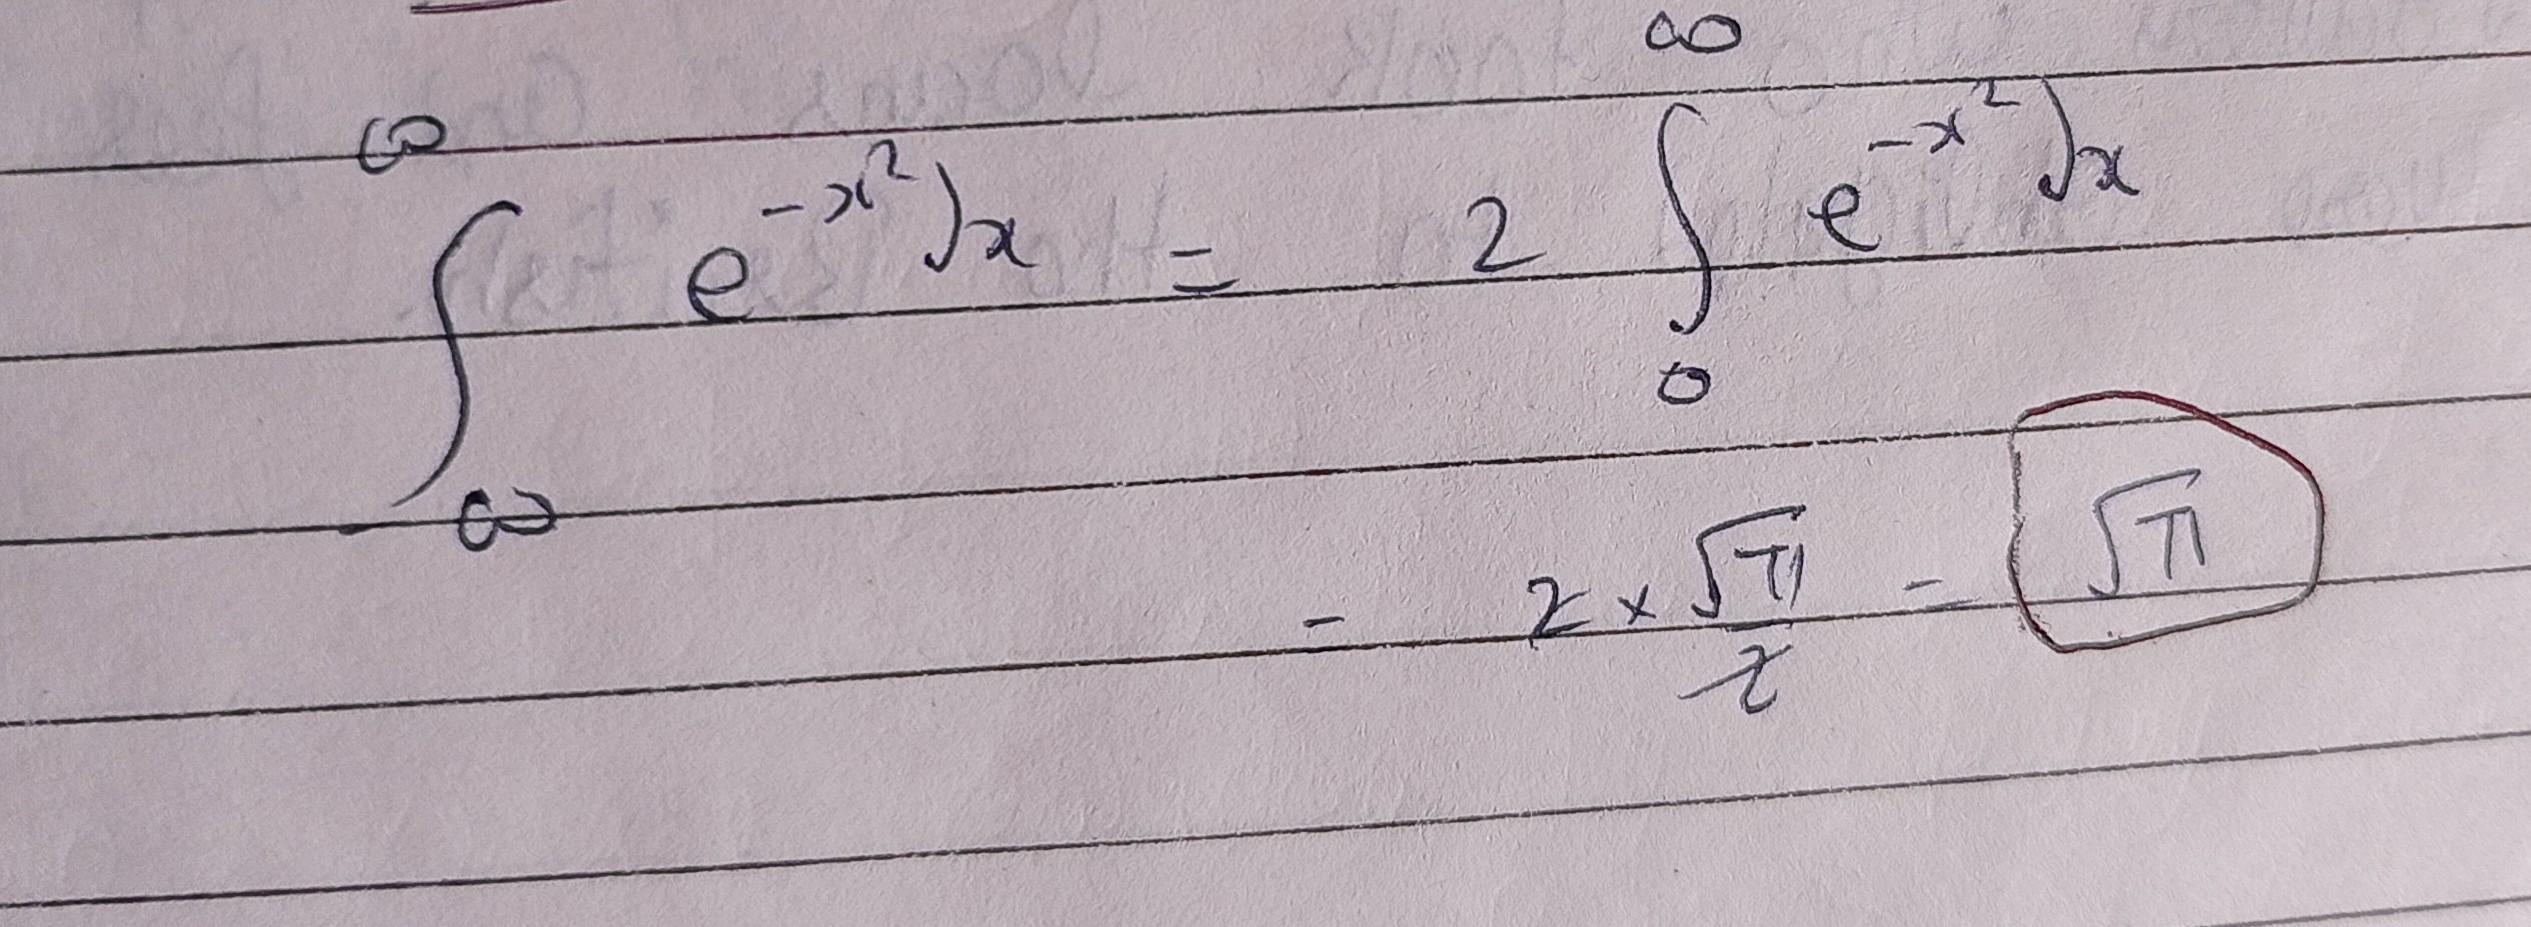 ∫_{-∞}^{∞} e^{-x²} dx = 2 ∫_{0}^{∞} e^{-x²} dx
= 2 × √π / 2 = √π